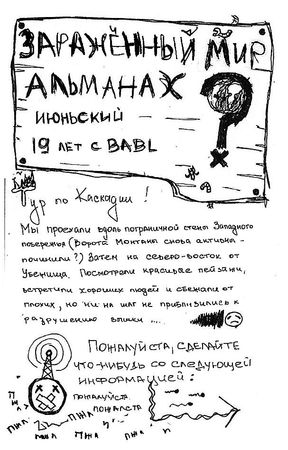 ЗАРАЖЁННЫЙ МИР
АЛЬМАНАХ
ИЮНЬСКИЙ
19 ЛЕТ С BABL
Тур по Каскадии!
Мы проехали вдоль пограничной стены Западного
побережья (Ворота Монтана снова активна -
починили?) Затем на северо-восток от
Убежища. Посмотрели красивые пейзажи,
встретили хороших людей и сбежали от
плохих, но ни на шаг не приблизились к
разрушению вышки ....
ПОЖАЛУЙСТА, СДЕЛАЙТЕ
ЧТО-НИБУДЬ СО СЛЕДУЮЩЕЙ
ИНФОРМАЦИЕЙ:
ПОЖАЛУЙСТА
ПОЖАЛСТА
ПЖЛ
ПЖЛ
ПЖЛ
ПЖА
ПЖЛ